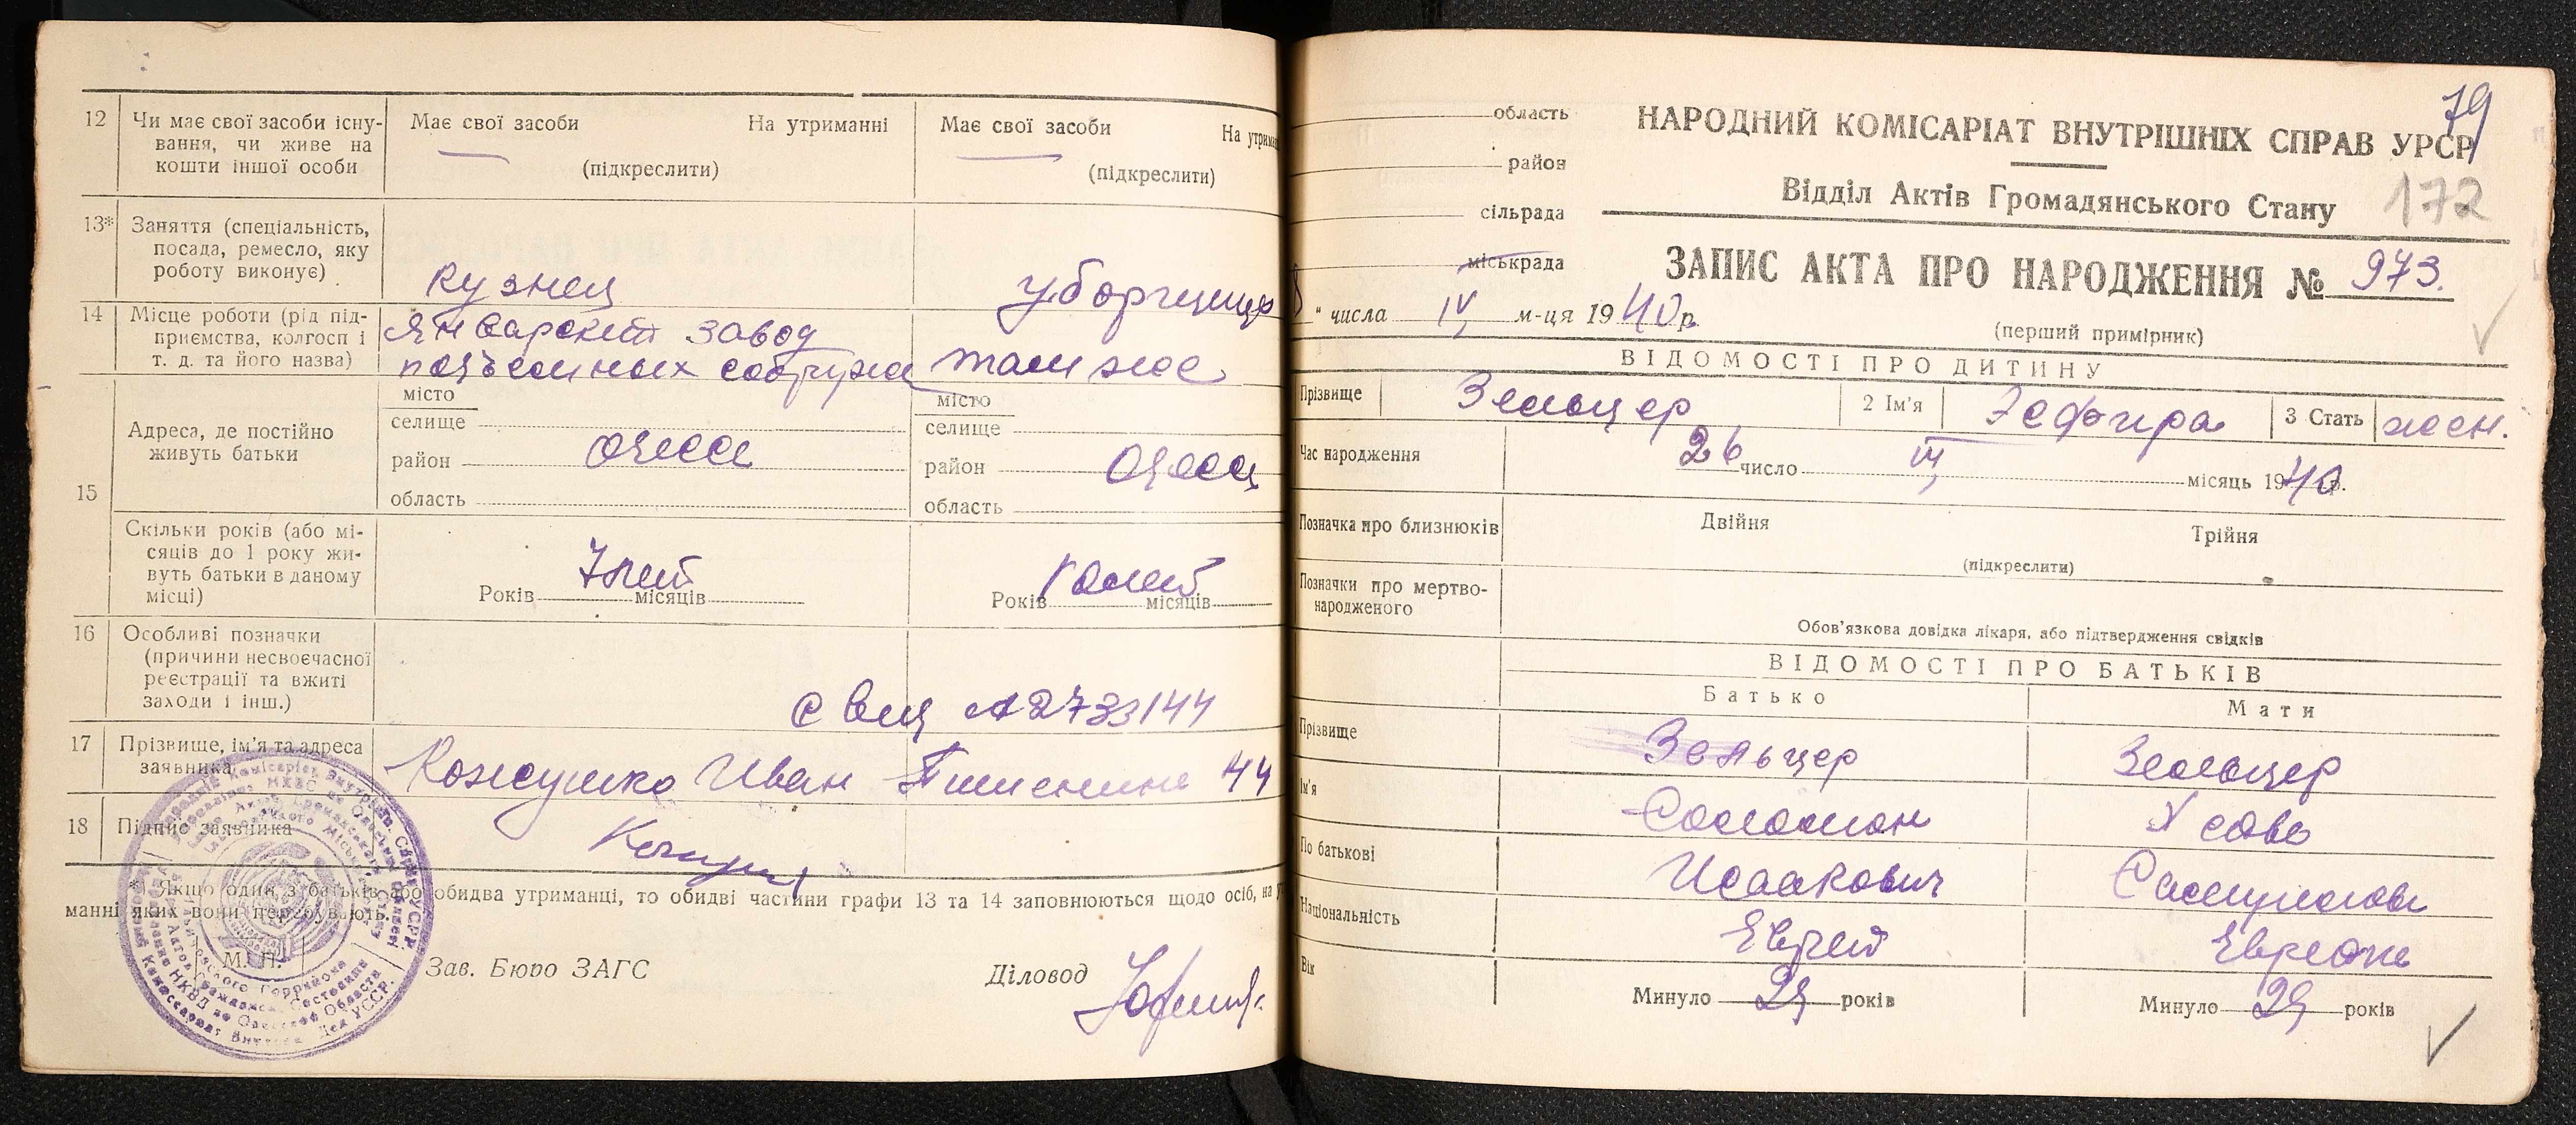 12 Чи має свої засоби існу-
вання, чи живе на
кошти іншої особи
Має свої засоби На утриманні
(підкреслити)
Має свої засоби На утрима
(підкреслити)
13* Заняття (спеціальність,
посада, ремесло, яку
роботу виконує)
кузнец
уборщица
14 Місце роботи (рід під-
приємства, колгосп і
т. д. та його назва)
Январский завод
подъемных сооруже
там же
15 Адреса, де постійно
живуть батьки
місто
селище
район Одесса
область
місто
селище
район Одесса
область
Скільки років (або мі-
сяців до 1 року жи-
вуть батьки в даному
місці)
7 лет
Років місяців
Років місяців
16 Особливі позначки
(причини несвоєчасної
реєстрації та вжиті
заходи і інш.)
свид А2733144
17 Прізвище, ім'я та адреса
заявника
Кожушко Иван 44
18 Підпис заявника
* Якщо один з батьків або обидва утриманці, то обидві частини графи 13 та 14 заповнюються щодо осіб, на у
манні яких вони перебувають.
М. П.
Зав. Бюро ЗАГС
Діловод
79
область
район
сільрада
міськрада
" числа IV м-ця 1940 р.
НАРОДНИЙ КОМІСАРІАТ ВНУТРІШНІХ СПРАВ УРСР
Відділ Актів Громадянського Стану
172
ЗАПИС АКТА ПРО НАРОДЖЕННЯ № 973.
(перший примірник)
ВІДОМОСТІ ПРО ДИТИНУ
Прізвище Зельцер 2 Ім'я Эсфира 3 Стать жен.
Час народження 26 число III місяць 1940 р.
Позначка про близнюків Двійня Трійня
(підкреслити)
Позначки про мертво-
народженого
Обов'язкова довідка лікаря, або підтвердження свідків
ВІДОМОСТІ ПРО БАТЬКІВ
Батько Мати
Прізвище Зельцер Зельцер
Ім'я Соломон Хава
По батькові Исаакович Самуиловн
Національність Еврей Еврейка
Вік Минуло 29 років Минуло 29 років